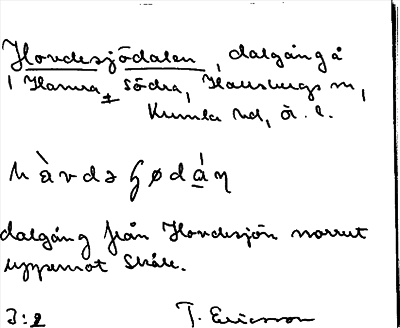 Hovdesjödalen, dalgång å
Hamra + Södra, Hallsbergs sn,
Kumla hd, Ö. l.
hàvdəʃødáɳ
dalgång från Hovdesjön norrut
uppemot Skåle.
3:2 T. Ericsson